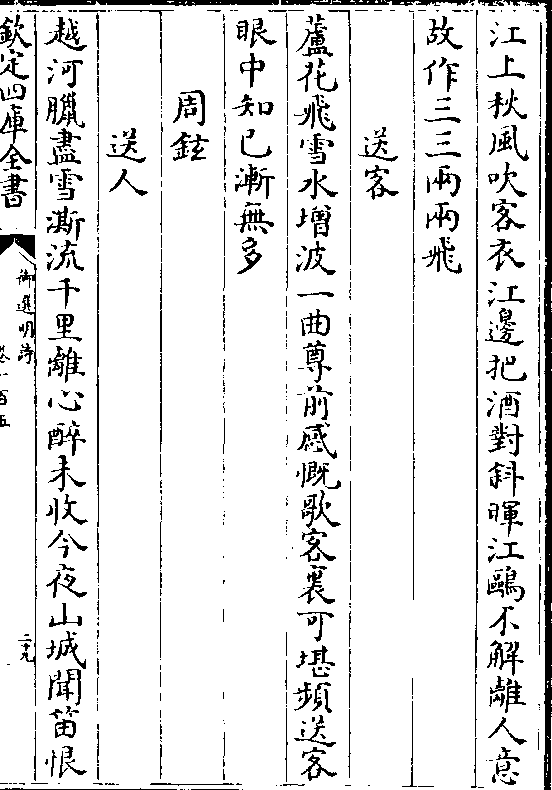 江上秋風吹客衣江邊把酒對斜暉江鷗不解離人意
故作三三兩兩飛
送客
蘆花飛雪水增波一曲尊前感慨歌客裏可堪頻送客
眼中知已漸無多
周鉉
送人
越河臘盡雪澌流千里離心醉未收今夜山城聞笛恨
欽定四庫全書
御選明詩
卷一百五
二十九